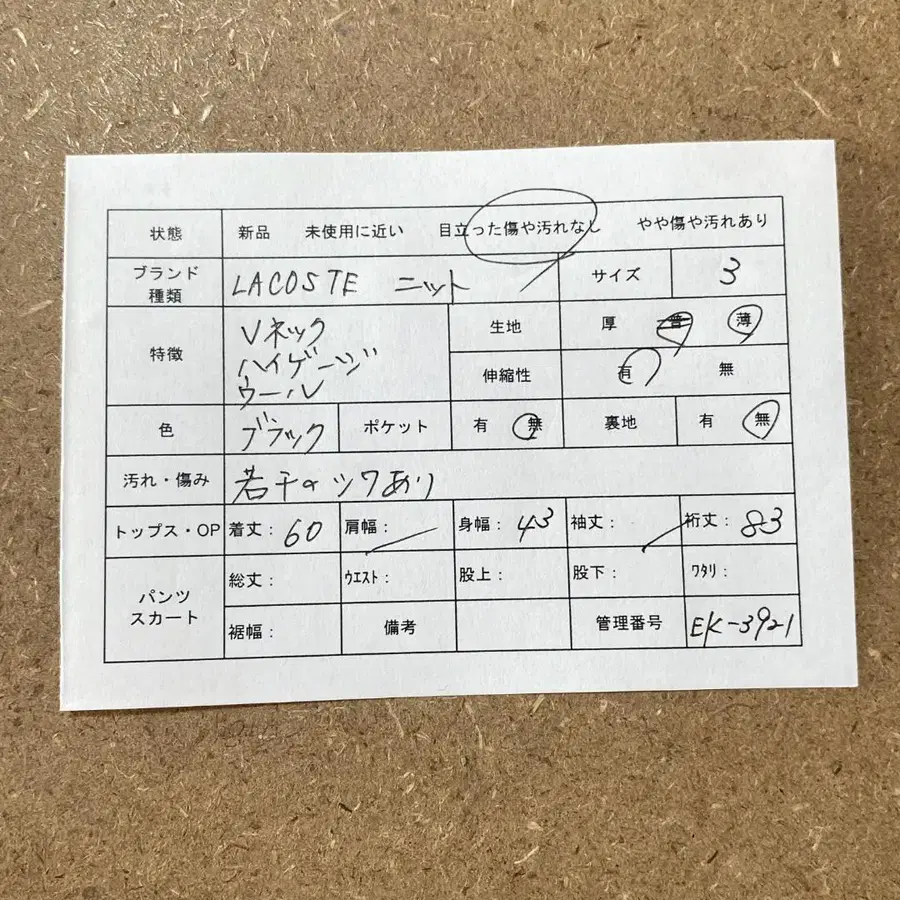 状態 新品 未使用に近い 目立った傷や汚れなし やや傷や汚れあり
ブランド種類 LACOSTE ニット サイズ 3
特徴 Vネック
ハイゲージ
ウール
生地 厚 普 薄
伸縮性 有 無
色 ブラック ポケット 有 無 裏地 有 無
汚れ・傷み 若干のシワあり
トップス・OP 着丈：60 肩幅： 身幅：43 袖丈： 裄丈：83
パンツ
スカート
総丈： ウエスト： 股上： 股下： ワタリ：
裾幅： 備考 管理番号 EK-3921